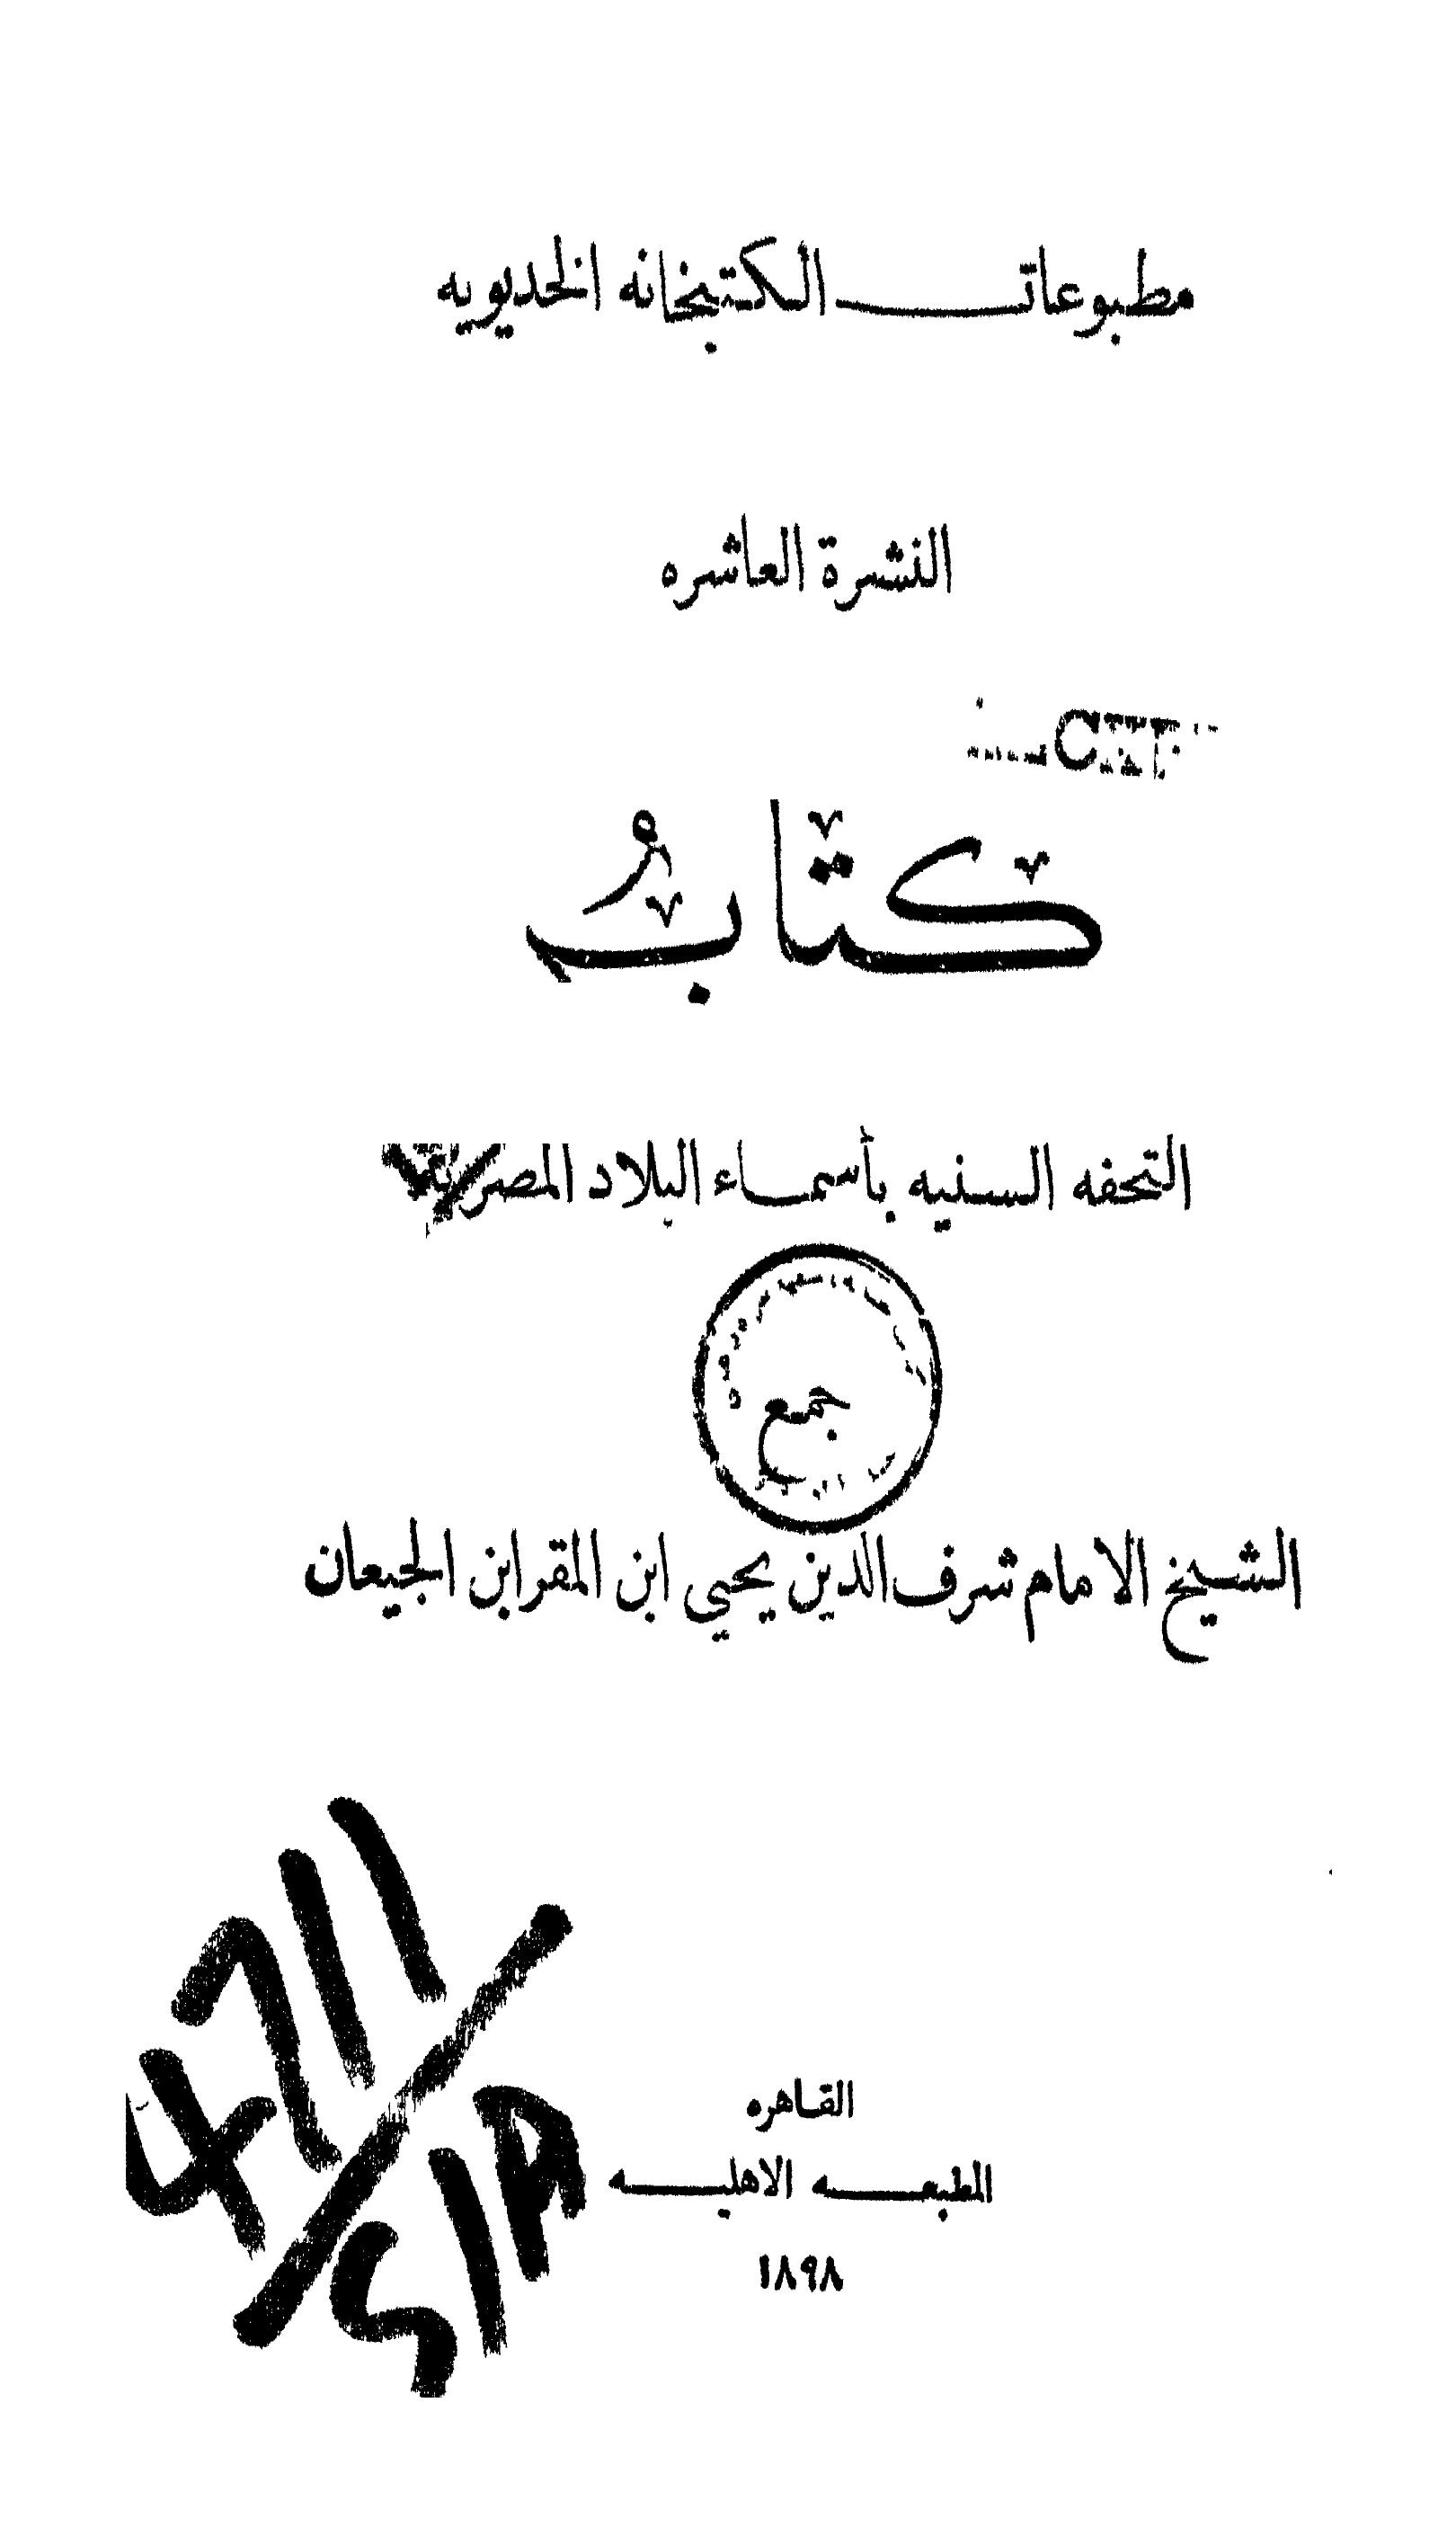 مطبوعات الكتبخانه الخديويه
النشرة العاشره
كتابُ
التحفه السنيه بأسماء البلاد المصريه
جمع
الشيخ الامام شرف الدين يحيي ابن المقر ابن الجيعان
القاهره
المطبعه الاهليه
١٨٩٨